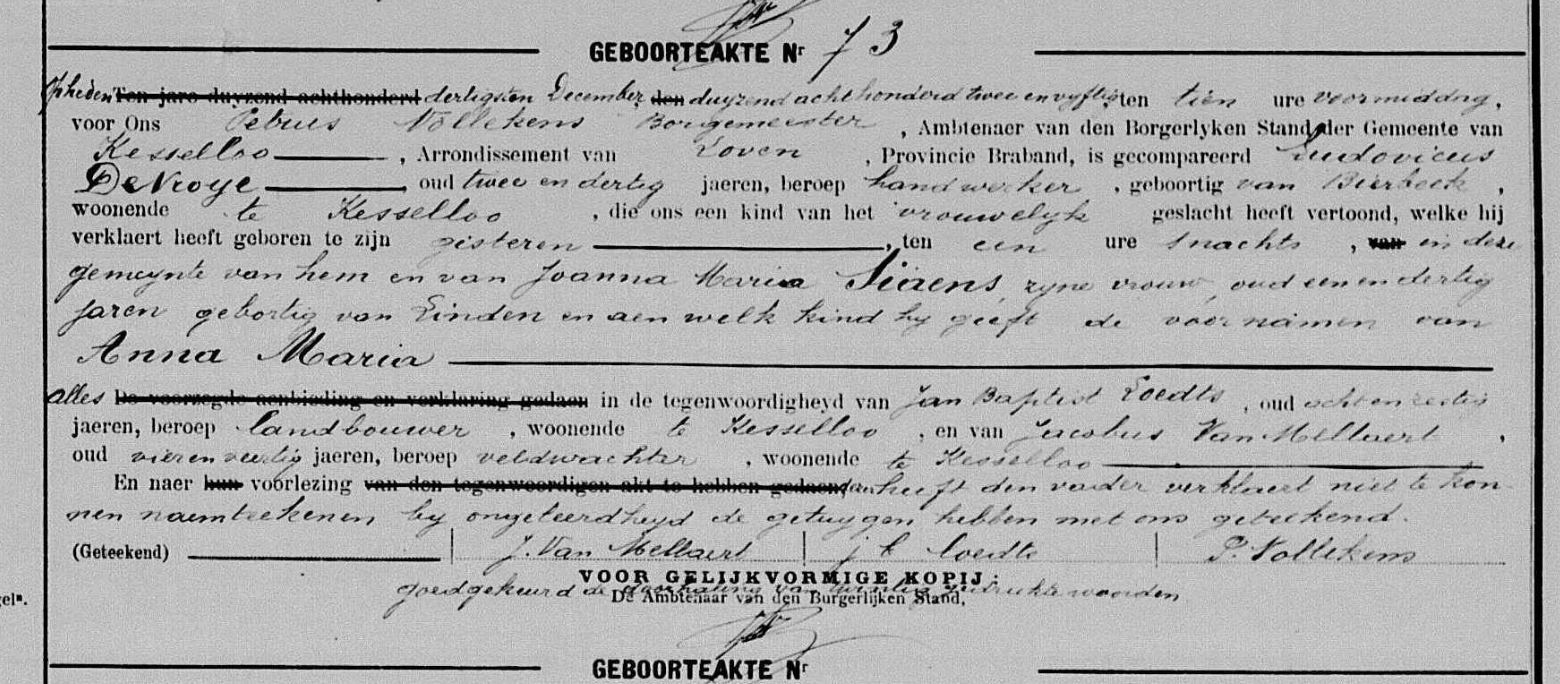 GEBOORTEAKTE Nr 73
Opheden Ten jare duyzend achthonderd dertigsten December den duyzend achthonderd twee en vyftig ten tien ure voormiddag,
voor Ons Petrus Nollekens Borgemeester , Ambtenaer van den Borgerlyken Stand der Gemeente van
Kesselloo , Arrondissement van Loven , Provincie Braband, is gecompareerd Ludovicus
DeNroye , oud twee en dertig jaeren, beroep handwerker , geboortig van Bierbeek ,
woonende te Kesselloo , die ons een kind van het vrouwelyk geslacht heeft vertoond, welke hij
verklaert heeft geboren te zijn gisteren , ten een ure snachts , van in deze
gemeynte van hem en van Joanna Maria Siaens, zyne vrouw, oud een en dertig
jaren gebortig van Linden en aen welk kind hy geeft de voornamen van
Anna Maria
alles De voorzegde aenbieding en verklaring gedaen in de tegenwoordigheyd van Jan Baptist Loedts , oud acht en zestig
jaeren, beroep landbouwer , woonende te Kesselloo , en van Jacobus Van Mellaert ,
oud vier en veertig jaeren, beroep veldwachter , woonende te Kesselloo
En naer hun voorlezing van den tegenwoordigen akt te hebben gedaen heeft den vader verklaert niet te kon-
nen naemteekenen by ongeleerdheyd de getuygen hebben met ons geteekend.
(Geteekend) J. Van Mellaert j b Loedts P. Nollekens
VOOR GELIJKVORMIGE KOPIJ:
goedgekeurd de doorhaling van twintig gedrukte woorden
De Ambtenaar van den Burgerlijken Stand,
gels.
GEBOORTEAKTE Nr